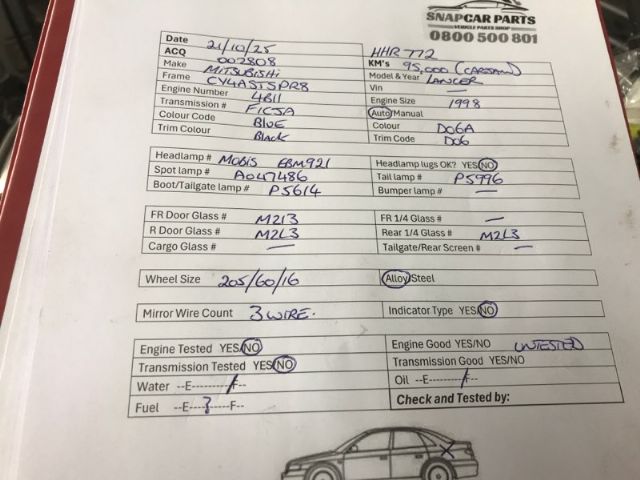 SNAPCAR PARTS
VEHICLE PARTS SHOP
0800 500 801
Date 21/10/25 HHR772
ACQ 002808 KM's 95,000 (CARSAM)
Make MITSUBISHI Model & Year LANCER
Frame CY4ASTSPR8 Vin —
Engine Number 4B11 Engine Size 1998
Transmission # F1C5A Auto/Manual
Colour Code BLUE Colour D06A
Trim Colour Black Trim Code D06
Headlamp # MOBIS EBM921 Headlamp lugs OK? YES/NO
Spot lamp # A047486 Tail lamp # P5996
Boot/Tailgate lamp # P5614 Bumper lamp # —
FR Door Glass # M213 FR 1/4 Glass # —
R Door Glass # M2L3 Rear 1/4 Glass # M2L3
Cargo Glass # — Tailgate/Rear Screen # —
Wheel Size 205/60/16 Alloy/Steel
Mirror Wire Count 3 WIRE. Indicator Type YES/NO
Engine Tested YES/NO Engine Good YES/NO UNTESTED
Transmission Tested YES/NO Transmission Good YES/NO
Water --E---------/F-- Oil --E------/-F--
Fuel --E----?-----F-- Check and Tested by:
X